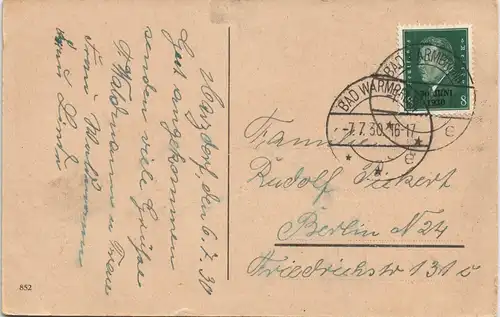 Märzdorf, den 6.7.30
Gut angekommen
senden viele Grüße
Waldemann u Frau
Frau
und Linda
BAD WARMBRUNN
-7.7.30.16-17
e
BAD WARMBRUNN
e
30. JUNI
1930
8
8
Familie
Rudolf Siekert
Berlin N 24
Friedrichstr 131 c
852